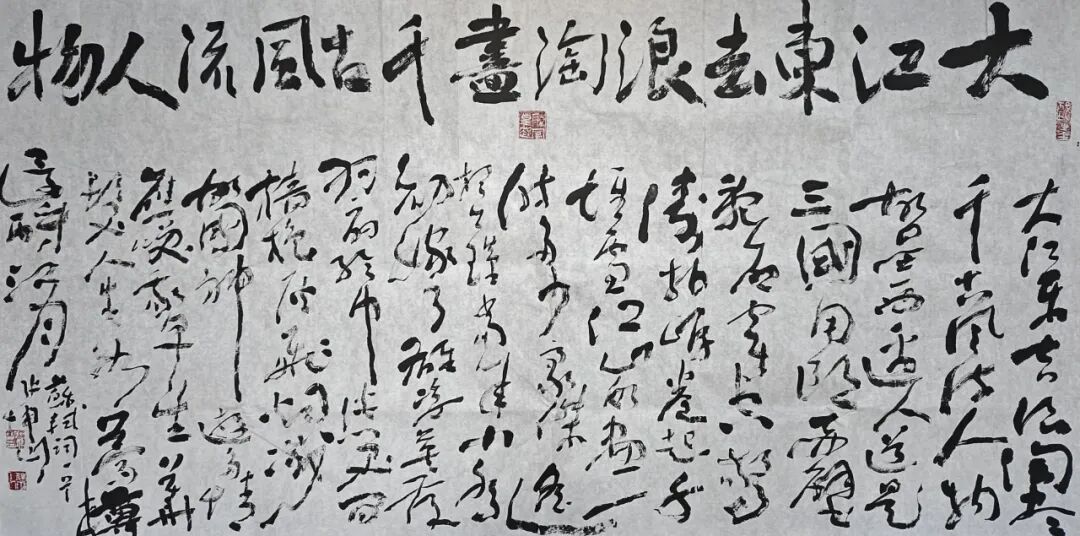 大江東去浪淘盡千古風流人物
大江東去浪淘盡
千古風流人物
故壘西邊人道是
三國周郎赤壁
亂石穿空驚
濤拍岸卷起千
堆雪江山如畫一
時多少豪傑遙
想公瑾當年小喬
初嫁了雄姿英發
羽扇綸巾談笑間
檣櫓灰飛煙滅
故國神遊多情
應笑我早生華
髮人生如夢一樽
還酹江月
蘇軾詞一首